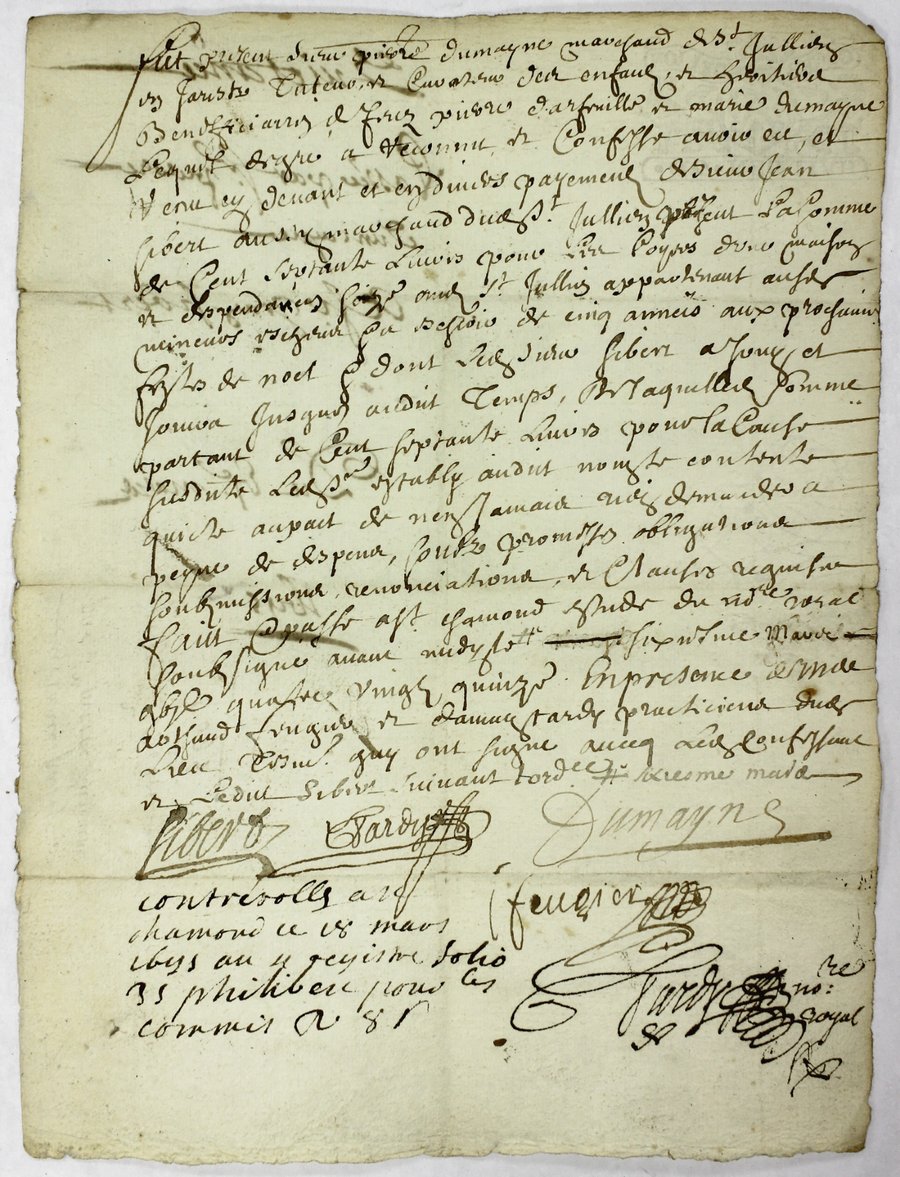 Fut present sieur pierre dumayne marchand de St Jullien
en Jarestz Tuteur et Curateur des enfans et heritiers
Beneficiaires de feuz pierre darfeuille et marie dumayne
Lequel de gre a reconnu et Confesse avoir eu et
receu cy devant et en divers payements de sieur Jean
Sibert aussy marchand dud St Jullien present La Somme
de Cent Septante Livres pour Les Loyers dune maison
et despendances size aud St Jullien appartenant ausd
mineurs escheus La de cinq années aux prochaines
festes de noel dont Led sieur Sibert a Jouy et
Jouira Jusques audit Temps, De laquelle Somme
partant de Cent Septante Livres pour la Cause
susdite Led Sr estably audit nom se contente
quicte avec pact de nen Jamais rien demander a
peyne de despens, soubz promesses obligations
soubzmissions, renonciations, et Clauses requises
faict Et passe a St chamond estude du no.re royal
soubsigne avant midy le seiziesme Mars
gbjC quatre vingt quinze En presence de
et tardy practiciens dud
Lieu Tesm. quy ont signe avecq Led Confessant
et Ledit Sibert suivant Lord.ce seiziesme mars
Sibert Tardy Dumayne
controrolle a St
chamond ce 18 mars
1695 au 4 registre folio
35 philibert pour les
commis R 8 s
feugier
Tardy no.re
royal